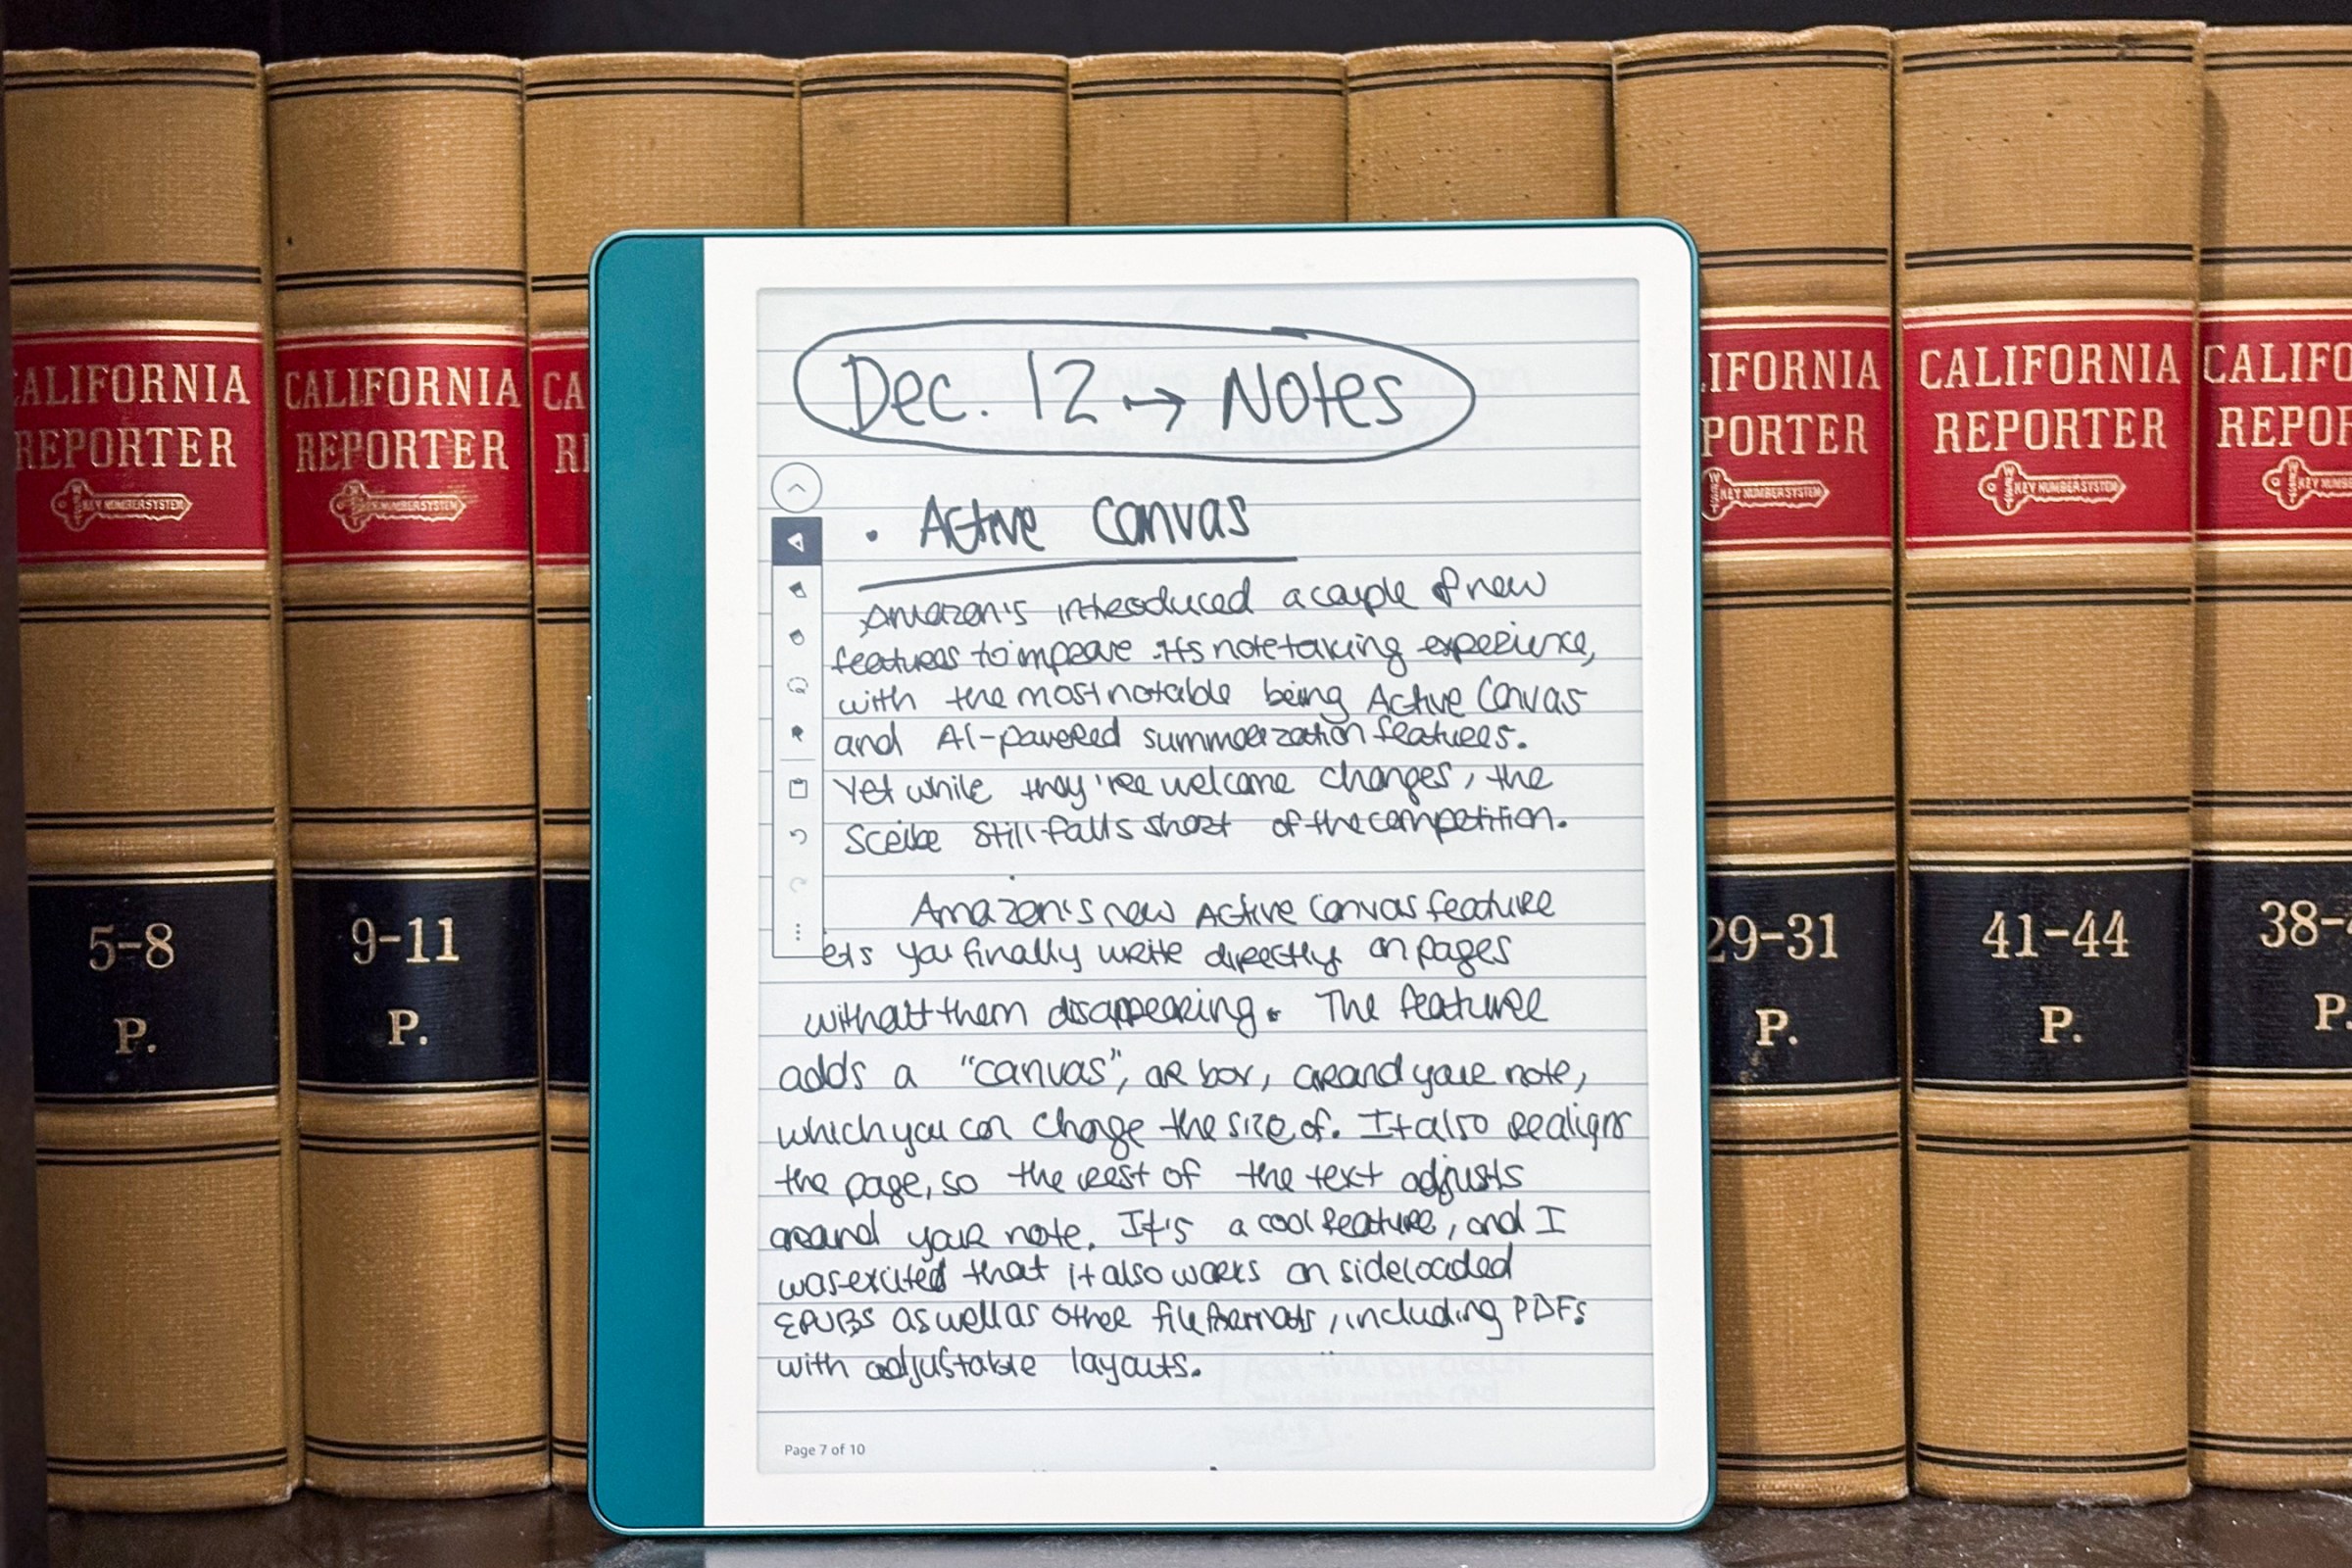 CALIFORNIA
REPORTER
KEY NUMBER SYSTEM
5-8
P.
CALIFORNIA
REPORTER
KEY NUMBER SYSTEM
9-11
P.
CA
RE
Dec. 12 → Notes
• Active Canvas
Amazon's introduced a couple of new
features to improve its notetaking experience,
with the most notable being Active Canvas
and AI-powered summarization features.
Yet while they're welcome changes, the
Scribe still falls short of the competition.
Amazon's new Active Canvas feature
ets you finally write directly on pages
without them disappearing. The feature
adds a "canvas", or box, around your note,
which you can change the size of. It also realigns
the page, so the rest of the text adjusts
around your note. It's a cool feature, and I
was excited that it also works on sideloaded
EPUBS as well as other file formats, including PDFs
with adjustable layouts.
Page 7 of 10
IFORNIA
PORTER
KEY NUMBER SYSTEM
29-31
P.
CALIFORNIA
REPORTER
KEY NUMBER SYSTEM
41-44
P.
CALIFO
REPOR
KEY NUMBE
38-
P.